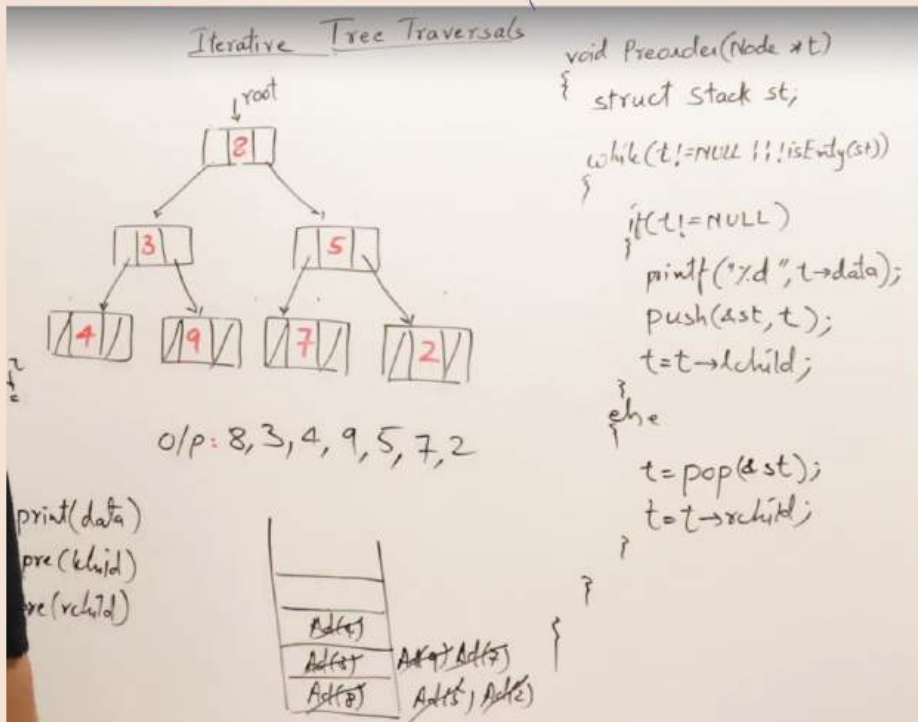 Iterative Tree Traversals
root
8
3 5
4 9 7 2
o/p: 8, 3, 4, 9, 5, 7, 2
print(data)
pre(lchild)
re(rchild)
Ad(4)
Ad(3) Ad(9) Ad(7)
Ad(8) Ad(5), Ad(2)
void Preorder(Node *t)
{
struct Stack st;
while(t!=NULL ||!isEmty(st))
{
if(t!=NULL)
{
printf("%d", t→data);
push(&st, t);
t=t→lchild;
}
else
{
t=pop(&st);
t=t→rchild;
}
}
}